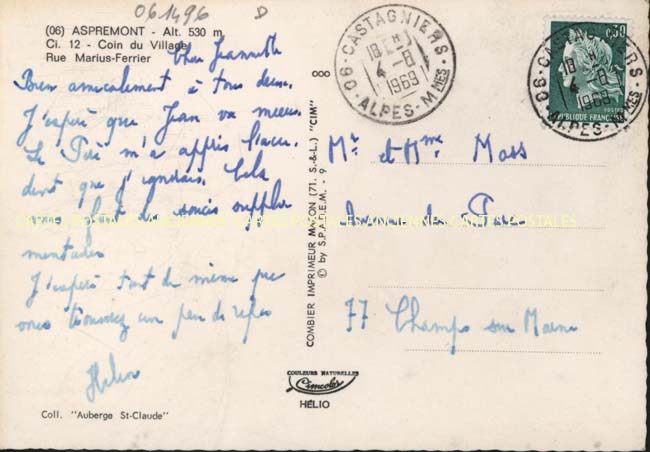 061496 D
(06) ASPREMONT - Alt. 530 m
Ci. 12 - Coin du Village
Rue Marius-Ferrier
Chère Jeannette
Bien amicalement à tous deux.
J'espère que Jean va mieux.
Le Père m'a appris l'acci-
dent que j'ignorais. Cela
vous fait soucis supplé-
mentaires
J'espère tout de même que
vous trouvez un peu de repos
Hélion
Coll. "Auberge St-Claude"
COMBIER IMPRIMEUR MACON (71. S.-&-L.) "CIM"
© by S.P.A.D.E.M. - 9
COULEURS NATURELLES
Cimcolor
HÉLIO
06 - CASTAGNIERS
18 H
4 - 8
1969
ALPES-MMES
06 - CASTAGNIERS
18 H
4 - 8
1969
ALPES-MMES
0,30
POSTES
RÉPUBLIQUE FRANÇAISE
Mr et Mme Mass
de
77 Champs sur Marne
CARTES POSTALES ANCIENNES CARTES POSTALES